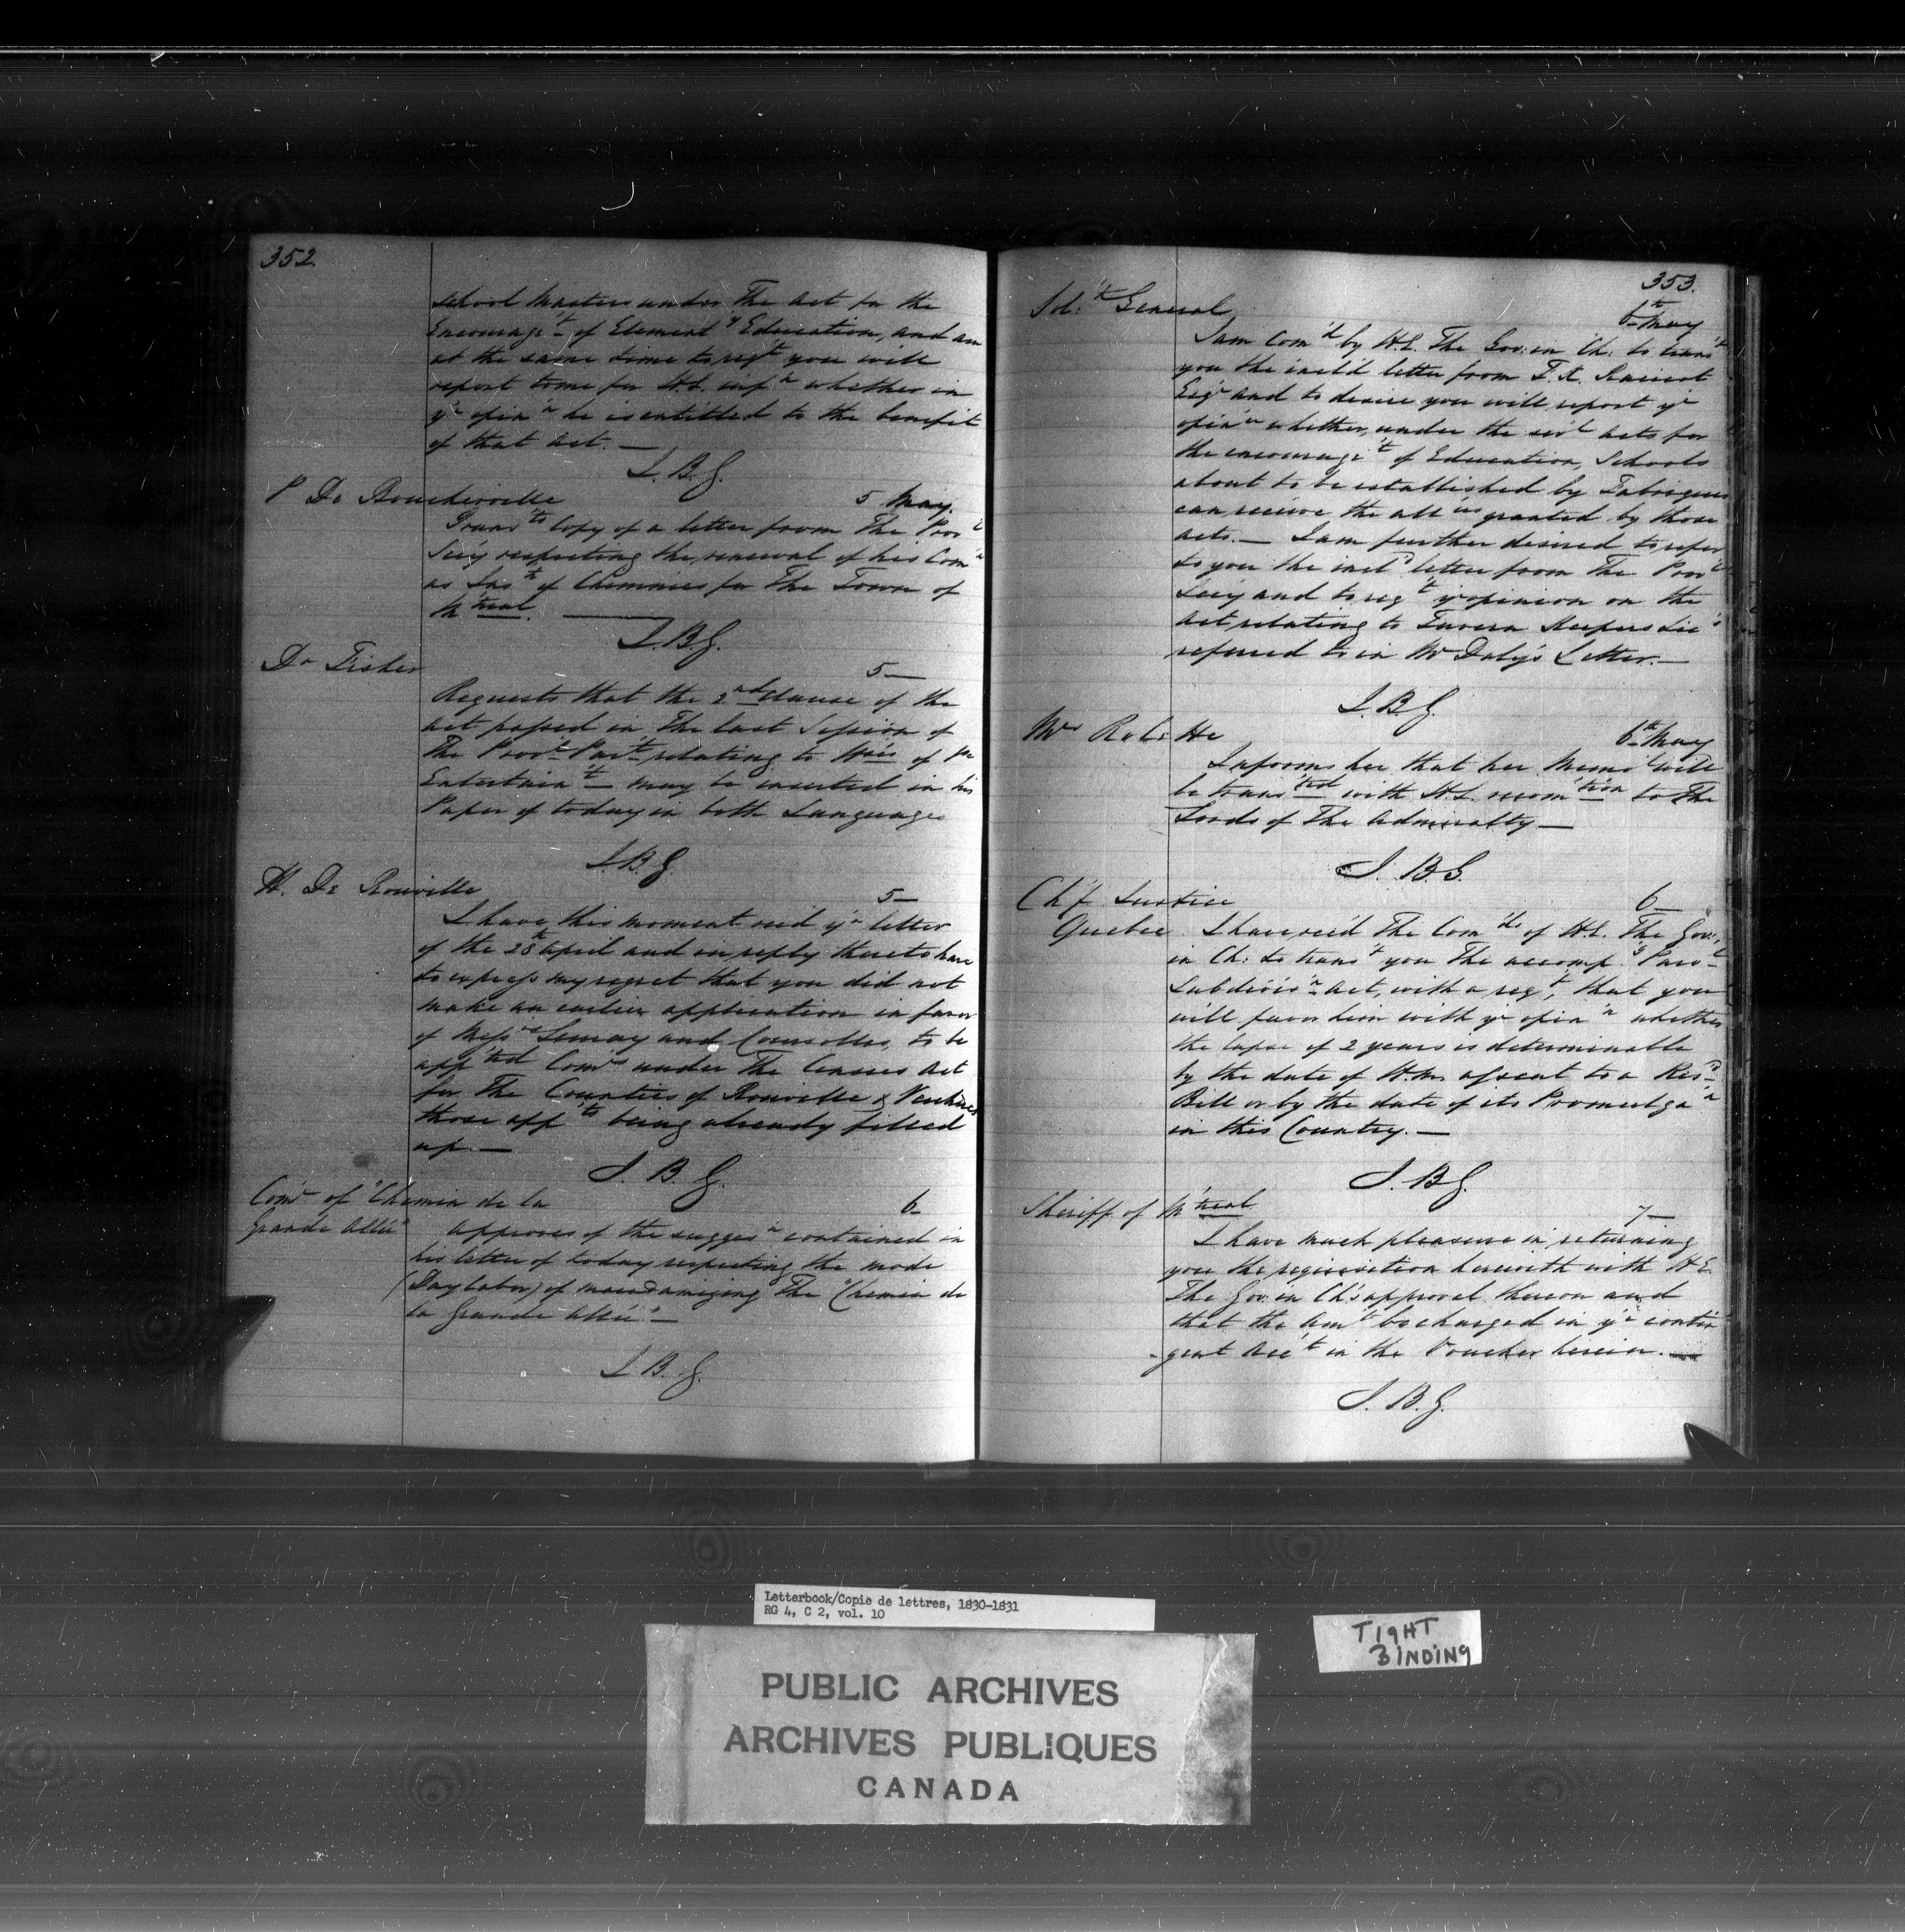 352.
School Masters under The Act for the
Encourage't of Element'y Education, and am
at the same time to req't you will
report to me for H.E. inf'n whether in
y'r opin'n he is entitled to the benefit
of that Act. —
J.B.G.
P De Boucherville 5 May.
Trans'ts Copy of a letter from The Prov'l
Sec'y respecting the renewal of his Com'n
as Ins'r of Chimnies for The Town of
M'treal. —
J.B.G.
Dr Fisher 5 —
Requests that the 2nd Clause of the
Act passed in The last Session of
The Prov'l Par't relating to H'ses of P'c
Entertain't — may be inserted in his
Paper of today in both Languages
J.B.G.
H. De Rouville 5 —
I have this moment rec'd y'r letter
of the 28th April and in reply thereto have
to express my regret that you did not
make an earlier application in favor
of Mess'rs Lemay and to be
app'ted Com'rs under The Census Act
for The Counties of Rouville & Verchères
those app'ts being already filled
up. —
J.B.G.
Com'r of "Chemin de la 6 —
Grande Allée" approves of the sugges'n contained in
his letter of today respecting the mode
(Day labor) of macadamizing The "Chemin de
la Grande Allée" —
J.B.G.
353.
Sol'r General 6th May
I am Com'd by H.E. The Gov: in Ch: to trans't
you the incl'd letter from F.X.
Esq'r and to desire you will report y'r
opin'n whether, under the sev'l Acts for
the encourage't of Education, Schools
about to be established by Fabriques
can receive the all'ces granted by those
acts. — I am further desired to refer
to you the incl'd letter from The Prov'l
Sec'y and to req't y'r opinion on the
Act, relating to Tavern Keepers Lic's
referred to in Mr Daly's Letter. —
J.B.G.
Mrs Rolette 6th May
Informs her that her Mem'l will
be trans'ted with H.E. recom'tion to The
Lords of The Admiralty —
J.B.G.
Ch'f Justice 6 —
Quebec I have rec'd The Com'ds of H.E. The Gov:
in Ch: to trans't you The accomp'g Paro'l
Subdivis'n Act, with a req't, that you
will favor him with y'r opin'n whether
the lapse of 2 years is determinable
by the date of H.M. assent to a Res'd
Bill or by the date of its Promulga'n
in this Country. —
J.B.G.
Sheriff of M'treal 7 —
I have much pleasure in returning
you the requisition herewith with H.E.
The Gov: in Ch's approval thereon and
that the Am't be charged in y'r contin
-gent Acc't in the Voucher herein. —
J.B.G.
Letterbook/Copie de lettres, 1830-1831
RG 4, C 2, vol. 10
TIGHT
BINDING
PUBLIC ARCHIVES
ARCHIVES PUBLIQUES
CANADA